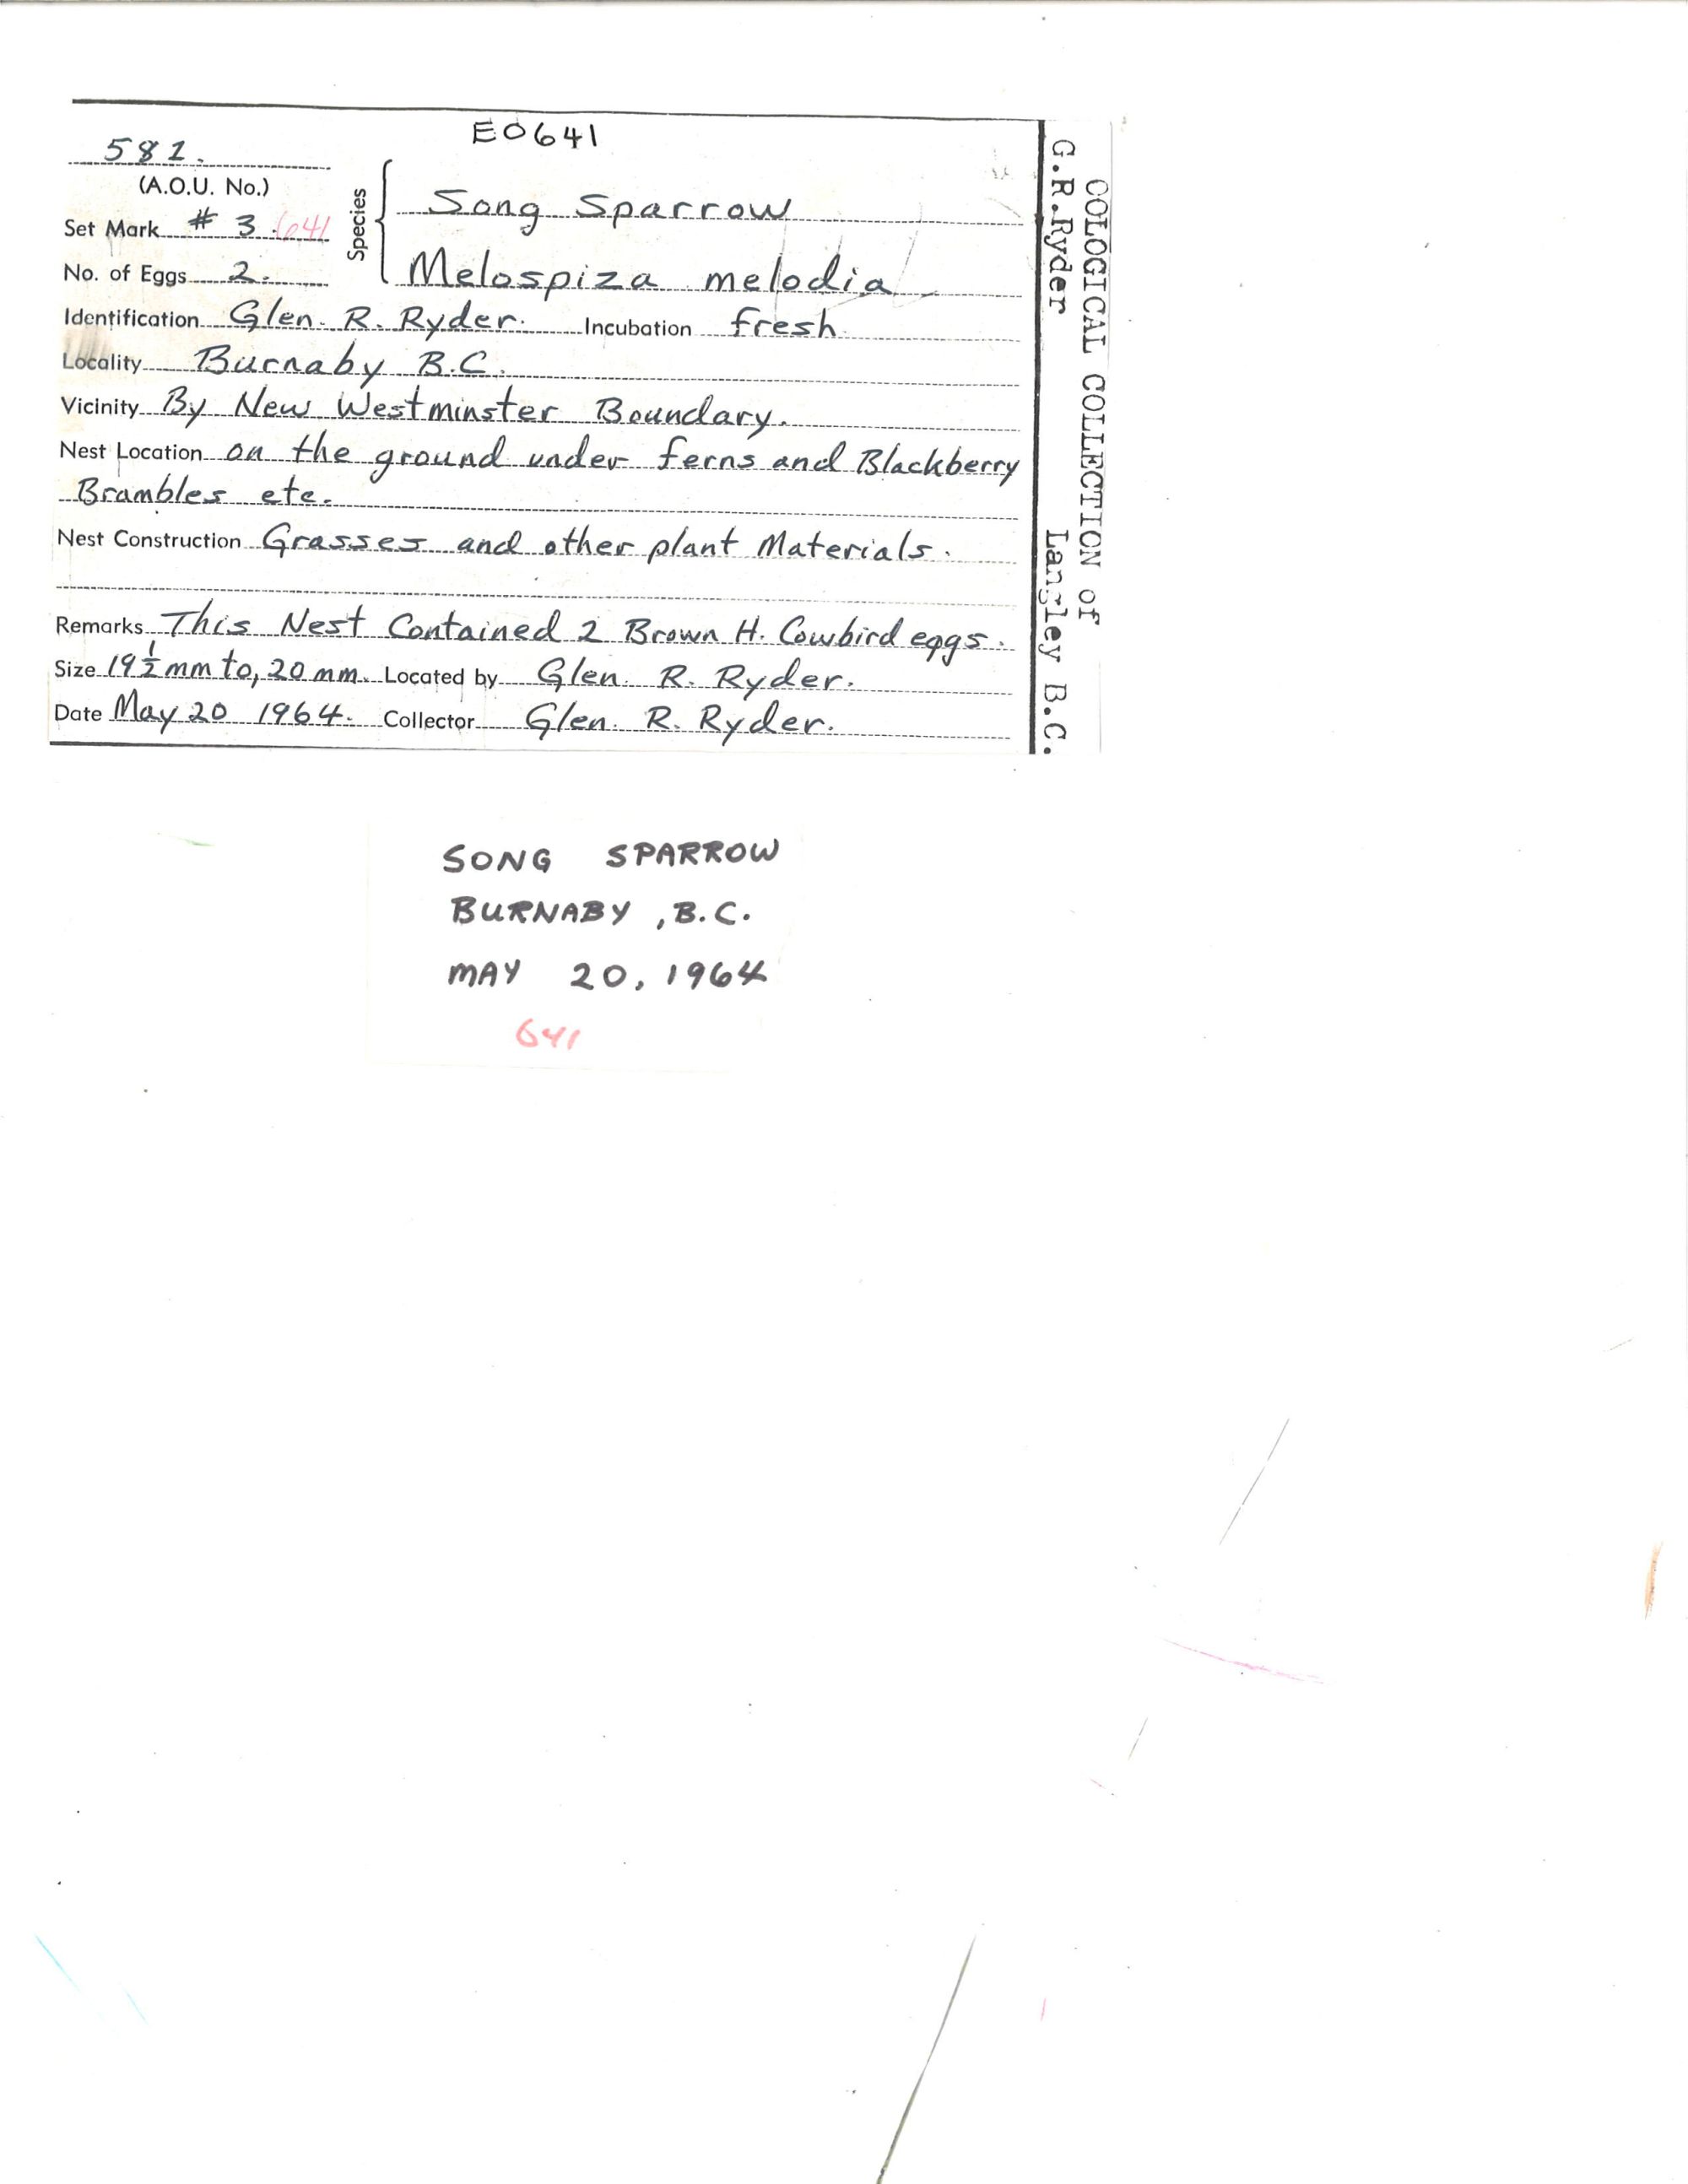 E0641
581.
(A.O.U. No.)
Set Mark # 3. 641
No. of Eggs 2.
Species
Song Sparrow
Melospiza melodia
Identification Glen. R. Ryder. Incubation fresh
Locality Burnaby B.C.
Vicinity By New Westminster Boundary.
Nest Location on the ground under ferns and Blackberry
Brambles etc.
Nest Construction Grasses and other plant Materials.
Remarks This Nest Contained 2 Brown H. Cowbird eggs.
Size 19½mm to, 20mm. Located by Glen. R. Ryder.
Date May 20 1964. Collector Glen. R. Ryder.
COLOGICAL COLLECTION of
G.R.Ryder Langley B.C.
SONG SPARROW
BURNABY, B.C.
MAY 20, 1964
641